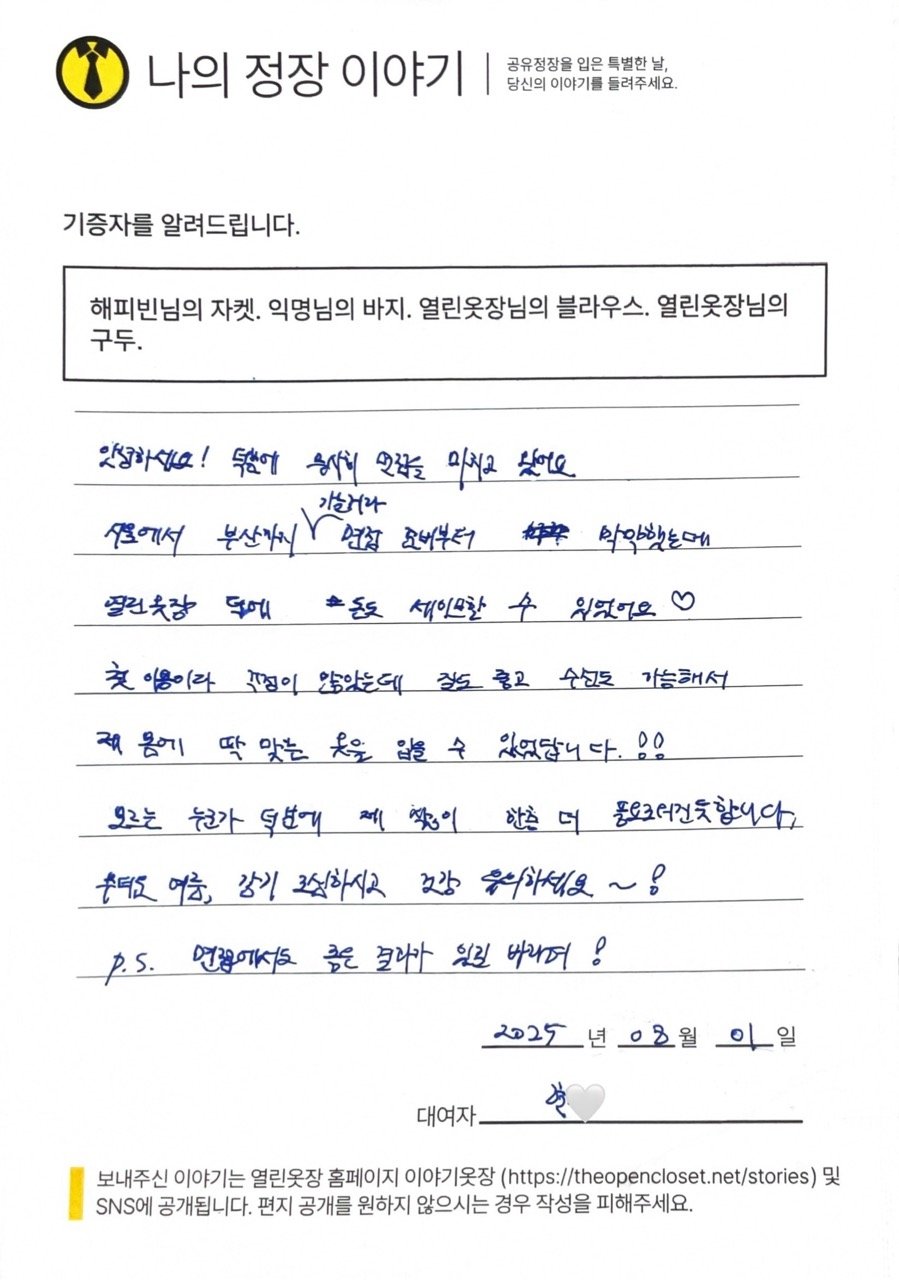 나의 정장 이야기
공유정장을 입은 특별한 날,
당신의 이야기를 들려주세요.
기증자를 알려드립니다.
해피빈님의 자켓. 익명님의 바지. 열린옷장님의 블라우스. 열린옷장님의
구두.
안녕하세요! 덕분에 무사히 면접을 마치고 왔어요
가는거라
서울에서 부산까지 면접 준비부터 막막했는데
열린옷장 덕에 돈도 세이브할 수 있었어요 ♡
첫 이용이라 걱정이 많았는데 질도 좋고 수선도 가능해서
제 몸에 딱 맞는 옷을 입을 수 있었답니다. !!
모르는 누군가 덕분에 제 면접이 한층 더 풍요로워진듯합니다,
무더운 여름, 감기 조심하시고 건강 유의하세요 ~ !
p.s. 면접에서도 좋은 결과가 있길 바라며 !
2025 년 08 월 01 일
대여자
보내주신 이야기는 열린옷장 홈페이지 이야기옷장 (https://theopencloset.net/stories) 및
SNS에 공개됩니다. 편지 공개를 원하지 않으시는 경우 작성을 피해주세요.